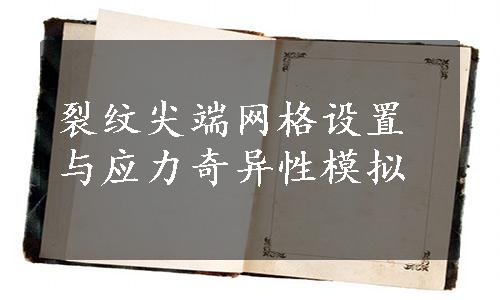 裂纹尖端网格设置
与应力奇异性模拟